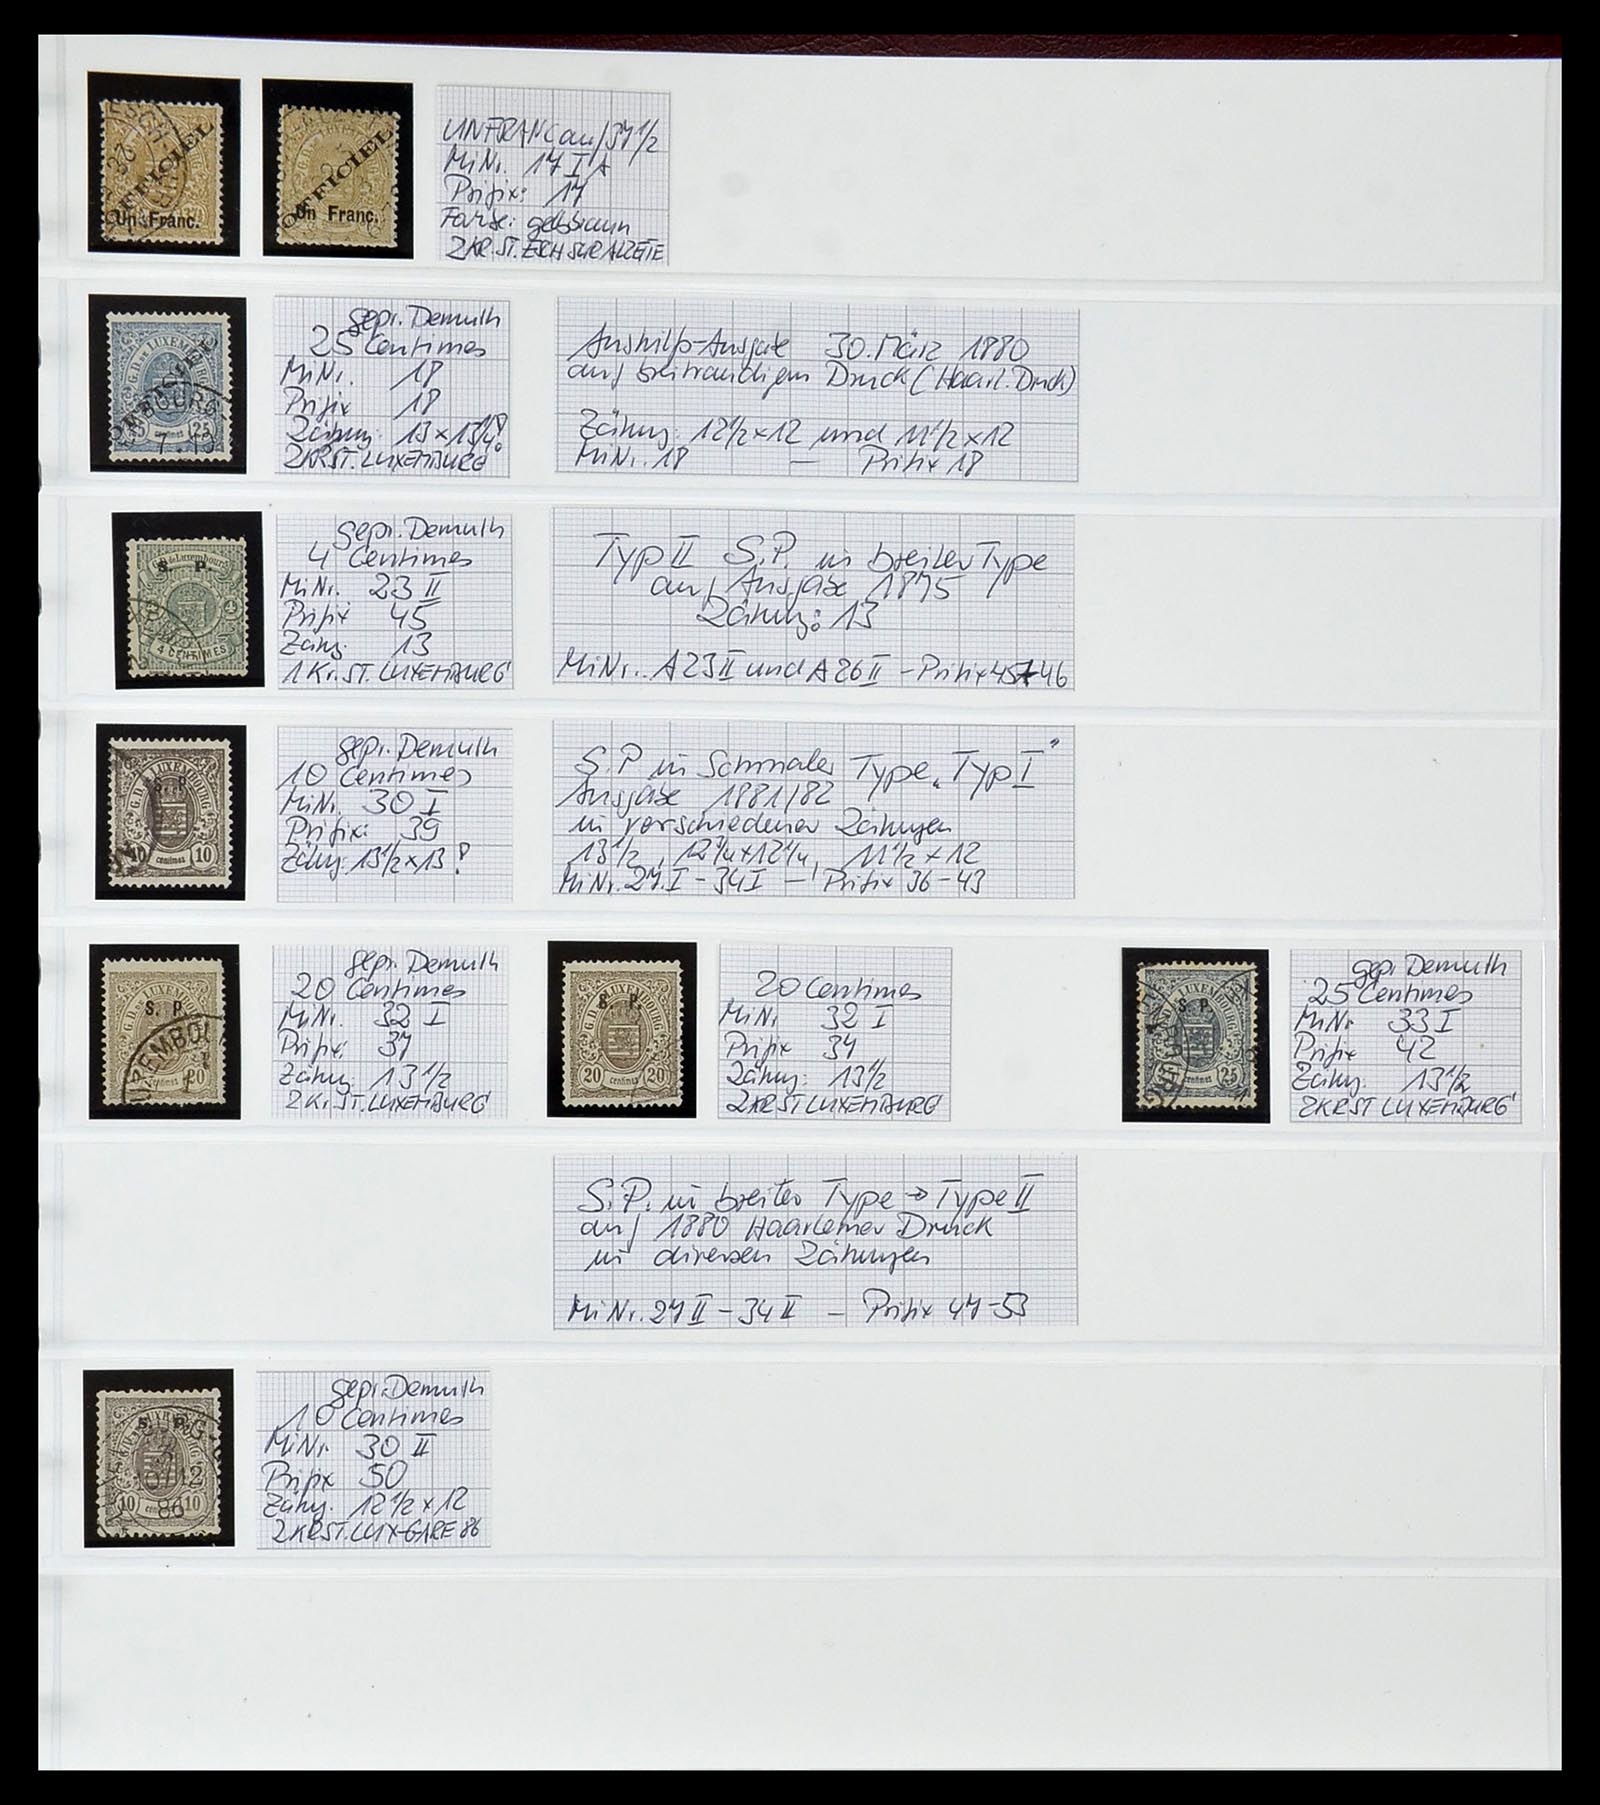 OFFICIEL
Un Franc.
OFFICIEL
Un Franc.
UN FRANC auf 37 1/2
MiNr. 17 I A
Prifix: 17
Farbe: gelbbraun
2KR.ST. ESCH SUR ALZETTE
G.D. DE LUXEMBOURG
25 centimes 25
gepr. Demuth
25 Centimes
MiNr. 18
Prifix 18
Zähng: 13 x 13 1/4!
2KRST. LUXEMBURG
Aushilfs-Ausgabe 30. März 1880
auf breitrandigem Druck (Haarl. Druck)
Zähng: 12 1/2 x 12 und 11 1/2 x 12
MiNr. 18 — Prifix 18
G.D. de Luxembourg
S. P.
4 CENTIMES
gepr. Demuth
4 Centimes
MiNr. 23 II
Prifix 45
Zähng. 13
1 Kr. ST. LUXEMBURG
Typ II S.P. in breiter Type
auf Ausgabe 1875
Zähng: 13
MiNr. A23 II und A26 II - Prifix 45+46
S. P.
10 centimes 10
gepr. Demuth
10 Centimes
MiNr. 30 I
Prifix: 39
Zähng: 13 1/2 x 13!
S.P in schmaler Type „Typ I"
Ausgabe 1881/82
in verschiedener Zähnungen
13 1/2, 12 3/4 x 12 1/4, 11 1/2 x 12
MiNr. 27.I - 34 I — Prifix 36-43
S. P.
centimes 20
gepr. Demuth
20 Centimes
MiNr. 32 I
Prifix: 37
Zähng: 13 1/2
2Kr.ST. LUXEMBURG
S. P.
20 centimes 20
20 Centimes
MiNr 32 I
Prifix 37
Zähng: 13 1/2
2KRST LUXEMBURG
S. P.
centimes 25
gepr Demuth
25 Centimes
MiNr 33 I
Prifix 42
Zähng. 13 1/2
2KRST LUXEMBURG
S.P. in breiter Type → Type II
auf 1880 Haarlemer Druck
in diversen Zähnungen
MiNr. 27 II - 34 II — Prifix 47-53
S. P.
10/12
86
10 centimes 10
gepr. Demuth
10 Centimes
MiNr. 30 II
Prifix 50
Zähng. 12 1/2 x 12
2KRST. LUX-GARE 86